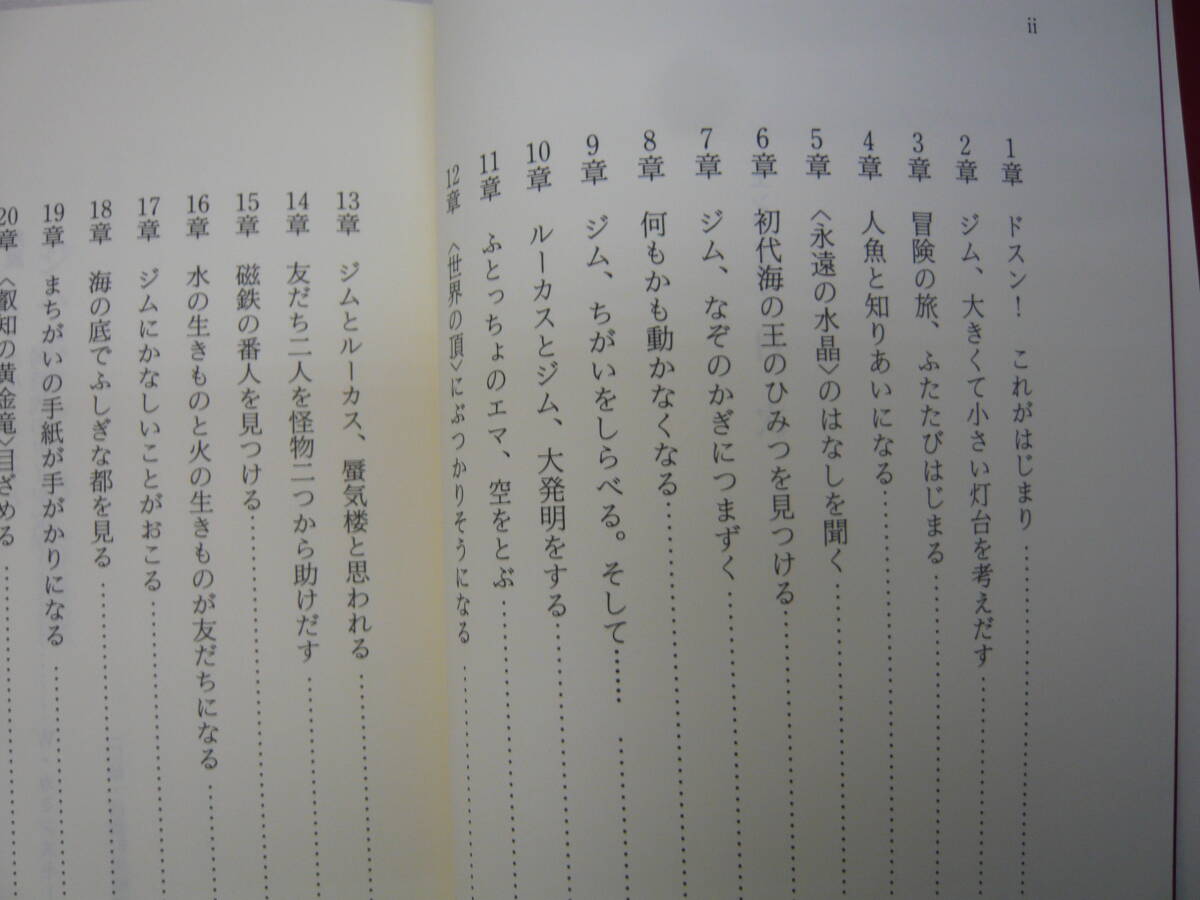 ii
1章 ドスン! これがはじまり
2章 ジム、大きくて小さい灯台を考えだす
3章 冒険の旅、ふたたびはじまる
4章 人魚と知りあいになる
5章 〈永遠の水晶〉のはなしを聞く
6章 初代海の王のひみつを見つける
7章 ジム、なぞのかぎにつまずく
8章 何もかも動かなくなる
9章 ジム、ちがいをしらべる。そして……
10章 ルーカスとジム、大発明をする
11章 ふとっちょのエマ、空をとぶ
12章 〈世界の頂〉にぶつかりそうになる
13章 ジムとルーカス、蜃気楼と思われる
14章 友だち二人を怪物二つから助けだす
15章 磁鉄の番人を見つける
16章 水の生きものと火の生きものが友だちになる
17章 ジムにかなしいことがおこる
18章 海の底でふしぎな都を見る
19章 まちがいの手紙が手がかりになる
20章 〈叡知の黄金竜〉目ざめる